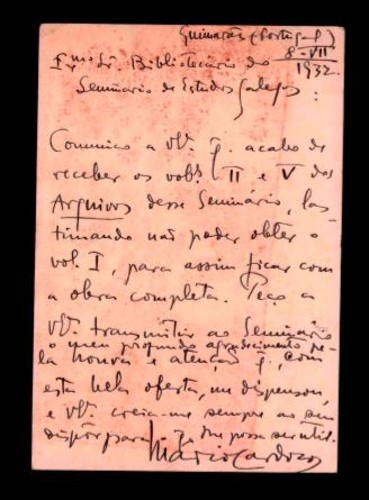 Guimarães (Portugal)
8-VII
1932.
Exmo Sr. Bibliotecário do
Seminario de Estudos Galegos:
Comunico a VE. q. acabo de
receber os vols. II e V dos
Arquivos desse Seminário, las-
timando não poder obter o
vol. I, para assim ficar com
a obra completa. Peço a
VE. transmitir ao Seminário
o meu profundo agradecimento pe-
la honra e atenção q., com
esta bela oferta, me dispensou,
e VE. creia-me sempre ao seu
dispôr para me possa ser util.
Mário Cardozo